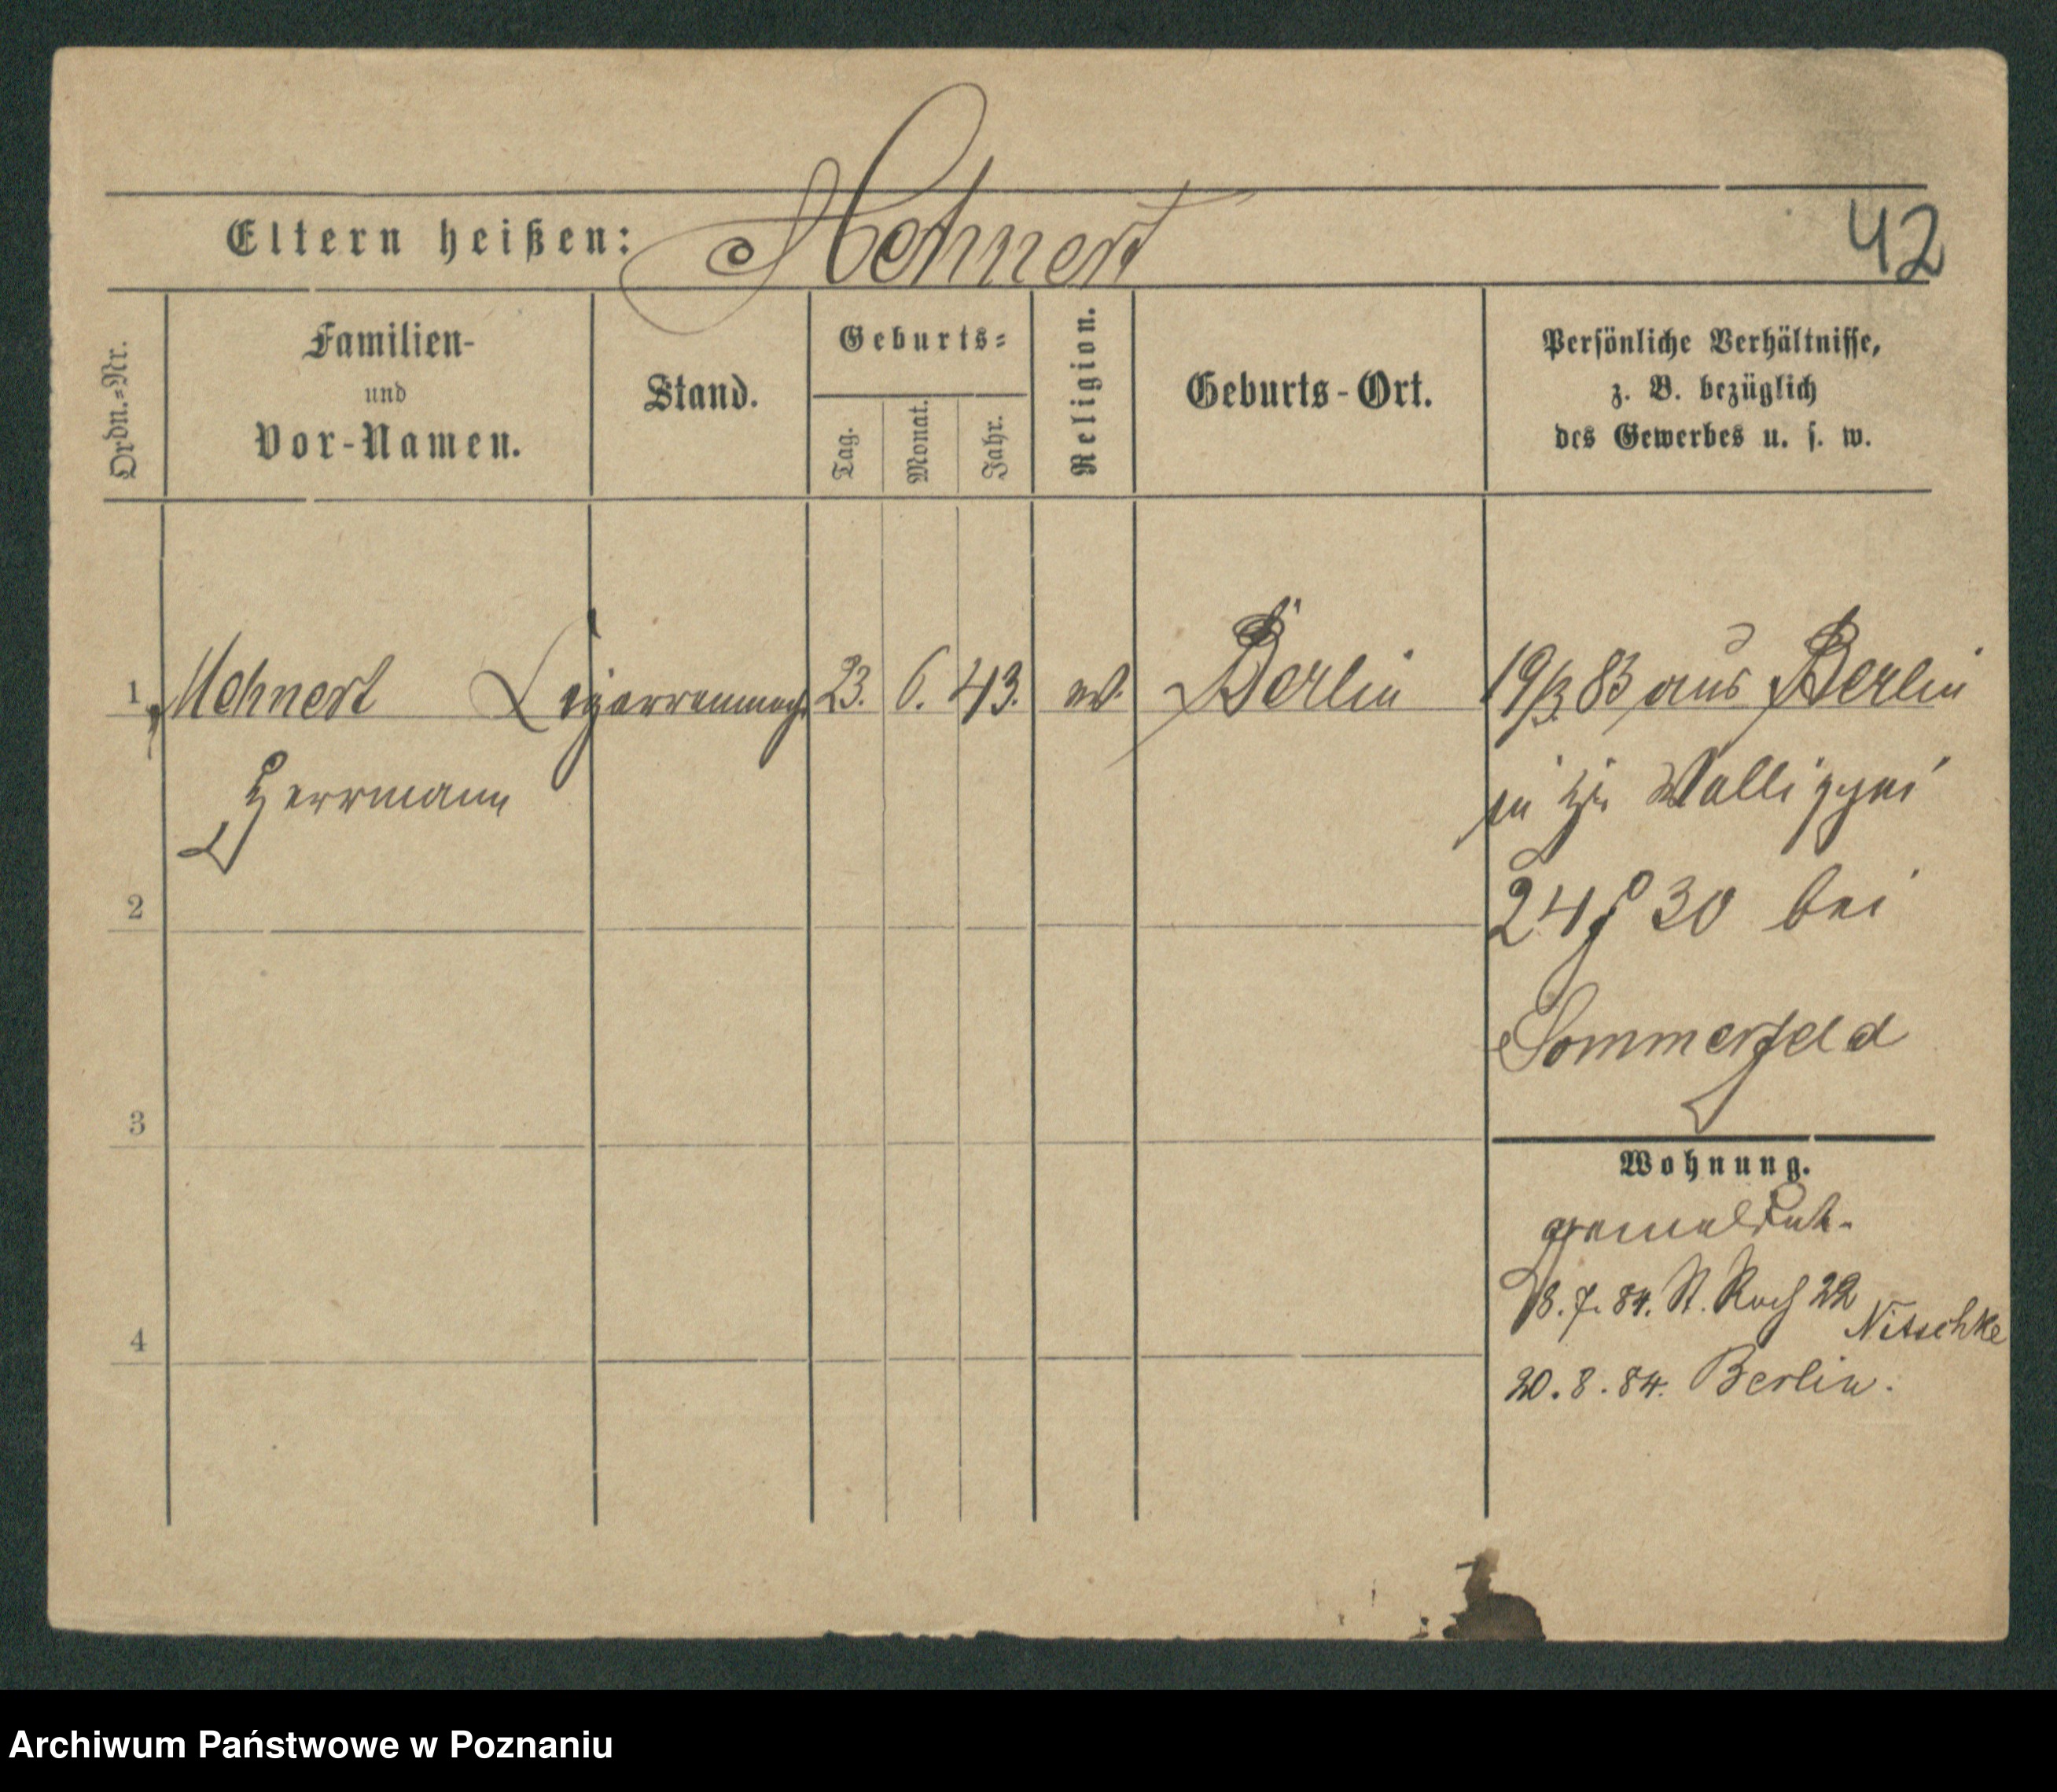 Eltern heißen: Mehnert
42
Ordn.=Nr.
Familien-
und
Vor-Namen.
Stand.
Geburts=
Tag.
Monat.
Jahr.
Religion.
Geburts-Ort.
Persönliche Verhältnisse,
z. B. bezüglich
des Gewerbes u. s. w.
1 Mehnert Cigarrenmach. 23. 6. 43. ev. Berlin 19/3 83 aus Berlin
Herrmann
in
2
30 bei
Sommerfeld
3
Wohnung.
18. 7. 84. St. Roch 22
Nitschke
4
20. 8. 84. Berlin.
Archiwum Państwowe w Poznaniu